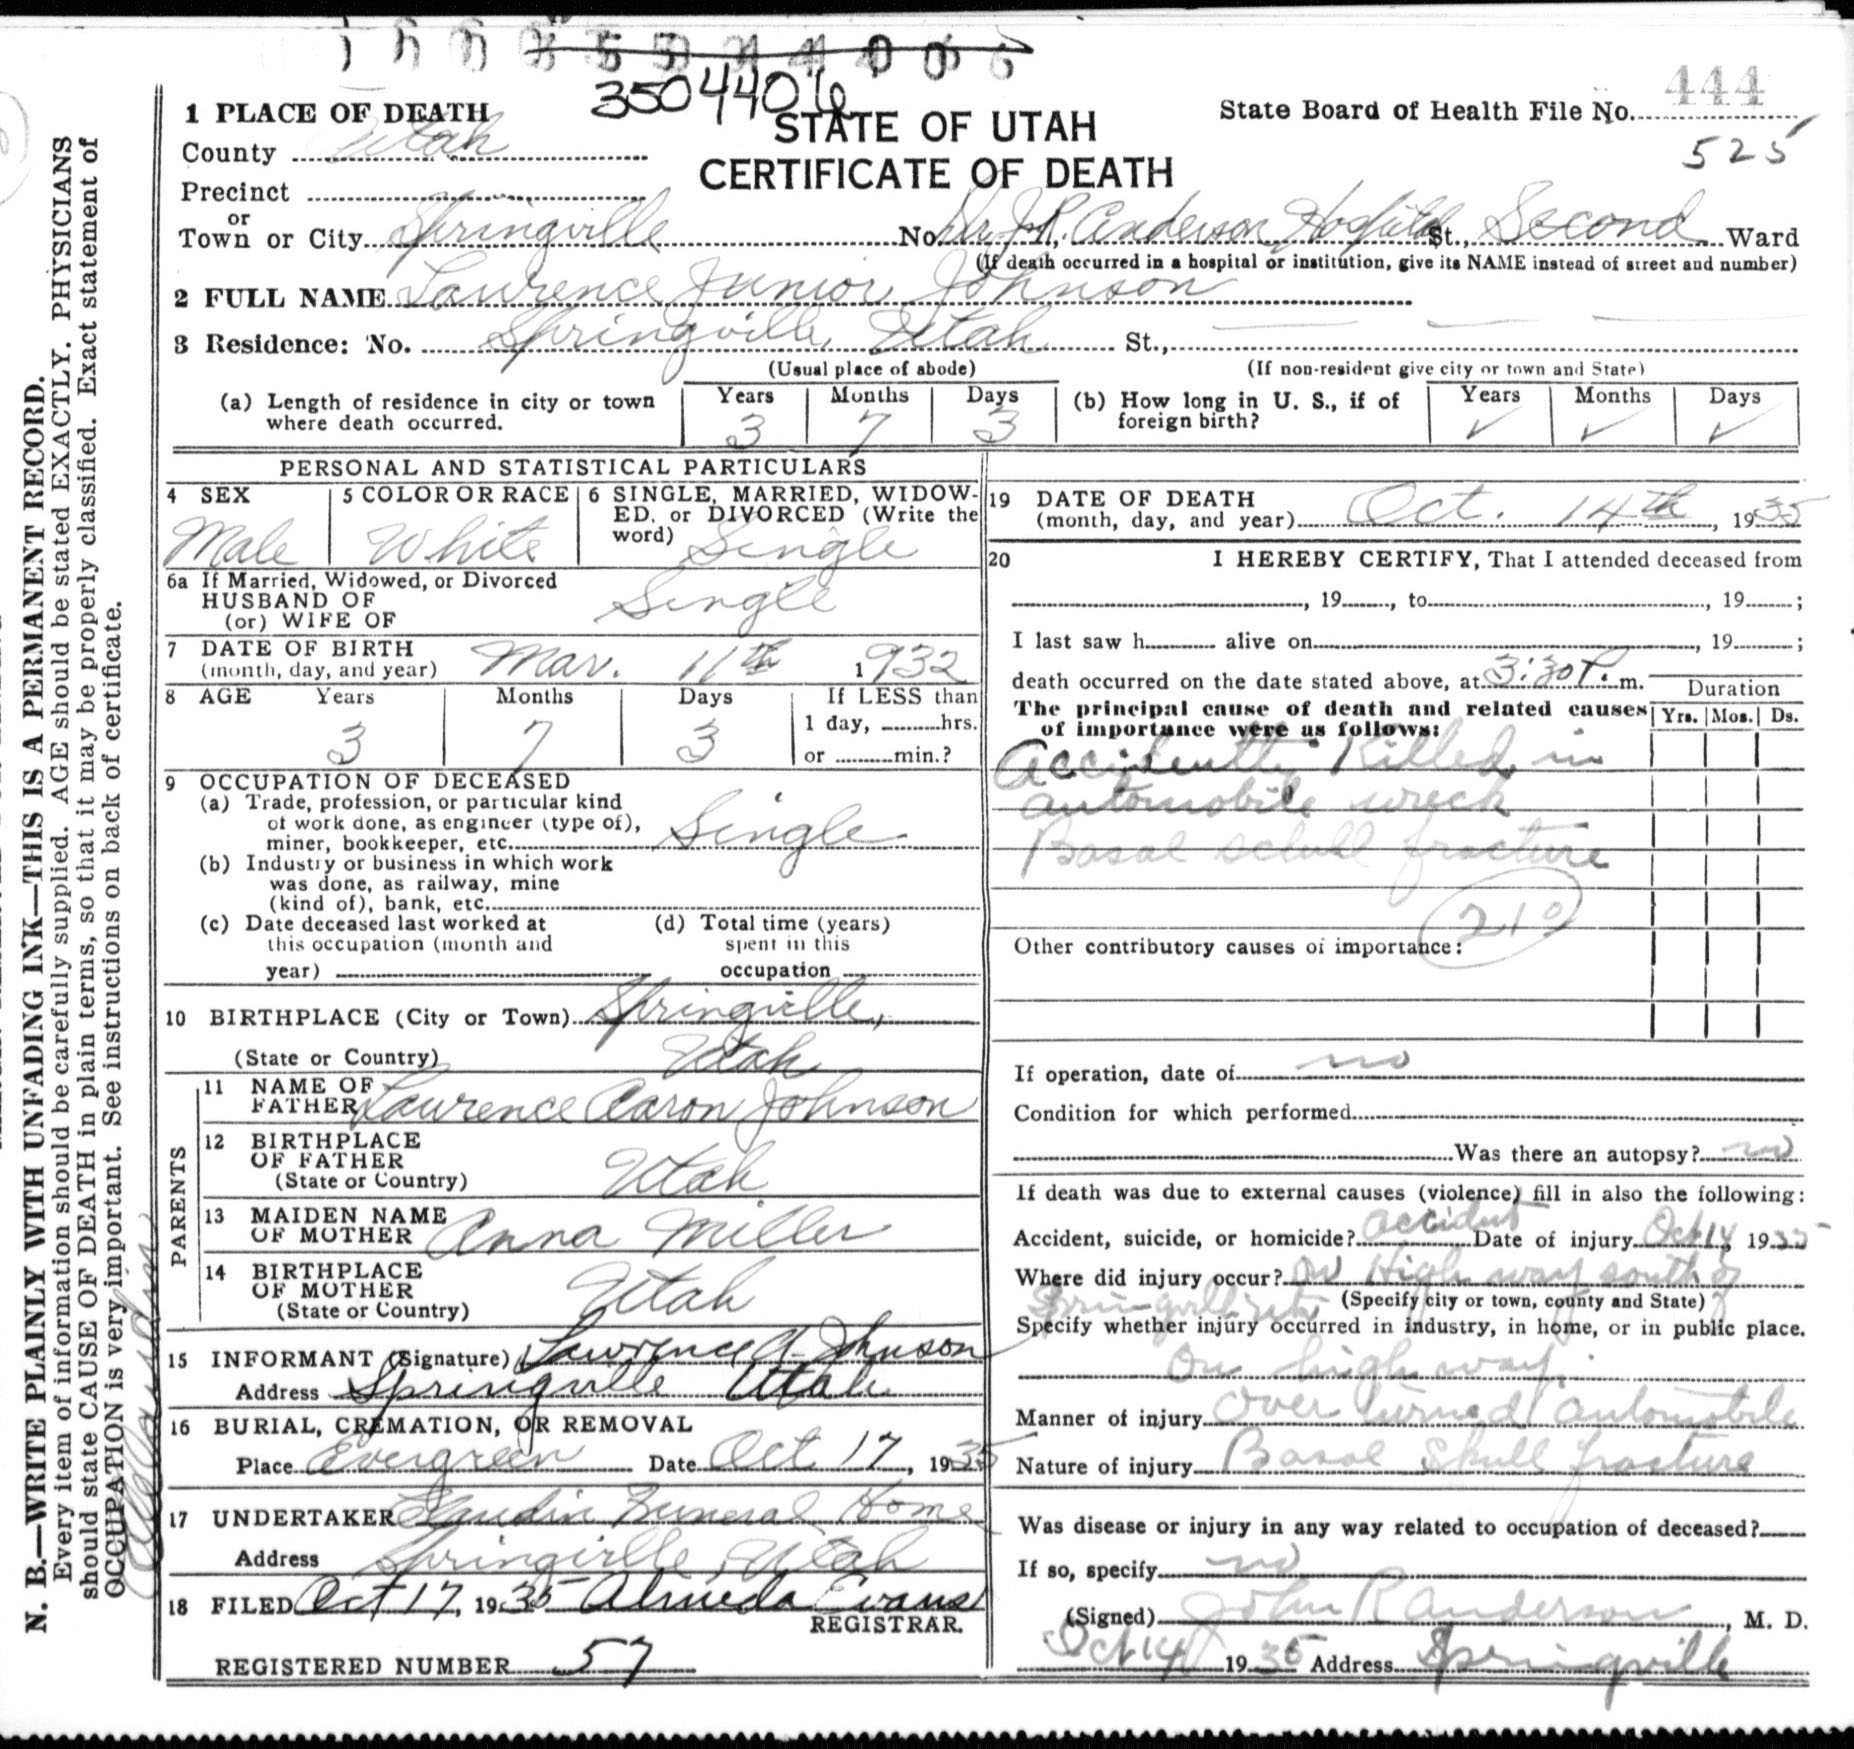 3504406
444
1 PLACE OF DEATH
STATE OF UTAH
CERTIFICATE OF DEATH
State Board of Health File No.
525
County Utah
Precinct
or
Town or City Springville No. Dr. J.R. Anderson Hospital St., Second Ward
(If death occurred in a hospital or institution, give its NAME instead of street and number)
2 FULL NAME Lawrence Junior Johnson
3 Residence: No. Springville, Utah St.,
(Usual place of abode) (If non-resident give city or town and State)
(a) Length of residence in city or town where death occurred. Years 3 Months 7 Days 3
(b) How long in U. S., if of foreign birth? Years ✓ Months ✓ Days ✓
PERSONAL AND STATISTICAL PARTICULARS
4 SEX Male
5 COLOR OR RACE White
6 SINGLE, MARRIED, WIDOW-
ED, or DIVORCED (Write the
word) Single
6a If Married, Widowed, or Divorced
HUSBAND OF
(or) WIFE OF Single
7 DATE OF BIRTH
(month, day, and year) Mar. 11th 1932
8 AGE Years 3 Months 7 Days 3 If LESS than
1 day, hrs.
or min.?
9 OCCUPATION OF DECEASED
(a) Trade, profession, or particular kind
of work done, as engineer (type of),
miner, bookkeeper, etc. Single
(b) Industry or business in which work
was done, as railway, mine
(kind of), bank, etc.
(c) Date deceased last worked at
this occupation (month and
year)
(d) Total time (years)
spent in this
occupation
10 BIRTHPLACE (City or Town) Springville,
(State or Country) Utah
PARENTS
11 NAME OF
FATHER Lawrence Aaron Johnson
12 BIRTHPLACE
OF FATHER
(State or Country) Utah
13 MAIDEN NAME
OF MOTHER Anna Miller
14 BIRTHPLACE
OF MOTHER
(State or Country) Utah
15 INFORMANT (Signature) Lawrence A. Johnson
Address Springville Utah
16 BURIAL, CREMATION, OR REMOVAL
Place Evergreen Date Oct 17, 1935
17 UNDERTAKER Funeral Home
Address Springville, Utah
18 FILED Oct 17, 1935 Almeda Evans
REGISTRAR.
REGISTERED NUMBER 57
19 DATE OF DEATH
(month, day, and year) Oct. 14th, 1935
20 I HEREBY CERTIFY, That I attended deceased from
, 19 , to , 19 ;
I last saw h alive on , 19 ;
death occurred on the date stated above, at 3:30 P. m.
The principal cause of death and related causes
of importance were as follows:
Duration
Yrs. Mos. Ds.
Accidently Killed in
automobile wreck
Basal schull fracture
210
Other contributory causes of importance:
If operation, date of no
Condition for which performed
Was there an autopsy? no
If death was due to external causes (violence) fill in also the following:
Accident, suicide, or homicide? accident Date of injury Oct 14, 1935
Where did injury occur? on High way south of
Springville Utah (Specify city or town, county and State)
Specify whether injury occurred in industry, in home, or in public place.
On high way
Manner of injury over turned automobile
Nature of injury Basal skull fracture
Was disease or injury in any way related to occupation of deceased?
If so, specify no
(Signed) John R Anderson, M. D.
Oct 14 1935 Address Springville
N. B.—WRITE PLAINLY WITH UNFADING INK—THIS IS A PERMANENT RECORD.
Every item of information should be carefully supplied. AGE should be stated EXACTLY. PHYSICIANS
should state CAUSE OF DEATH in plain terms, so that it may be properly classified. Exact statement of
OCCUPATION is very important. See instructions on back of certificate.